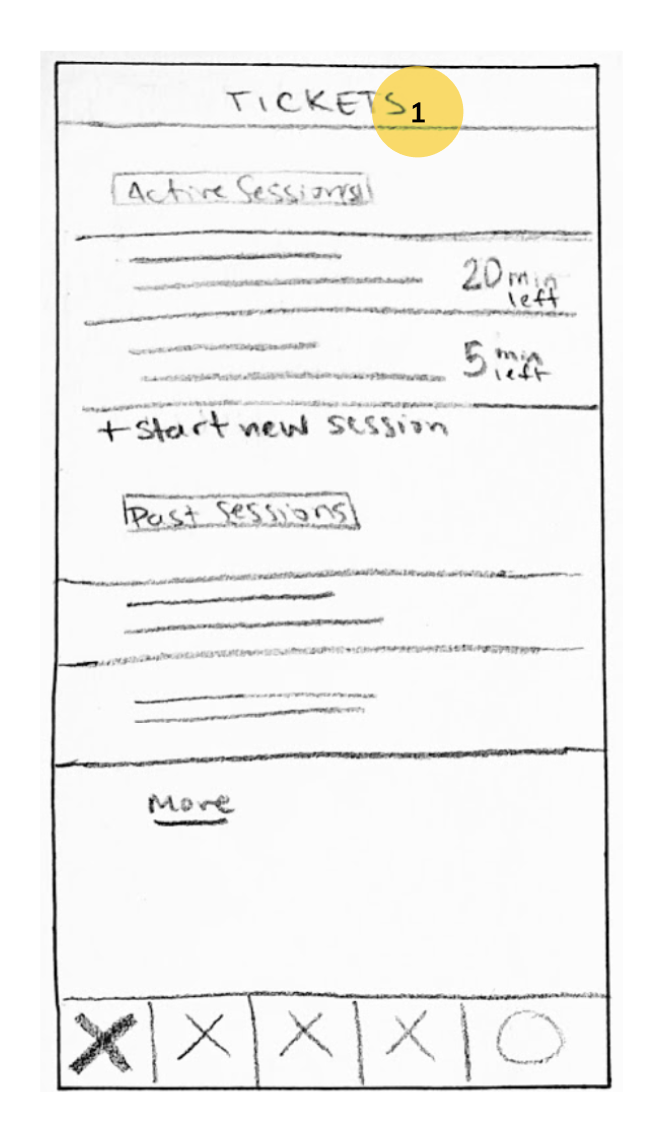 TICKETS
1
Active Sessions
20 min
left
5 min
left
+ Start new session
Past Sessions
More